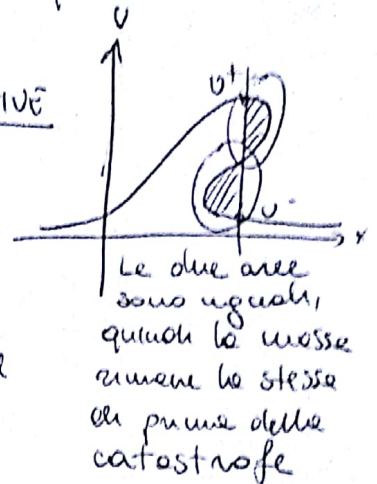 U
IVE
U⁺
U⁻
x
Le due aree
sono uguali,
quindi la massa
rimane la stessa
di prima della
catastrofe